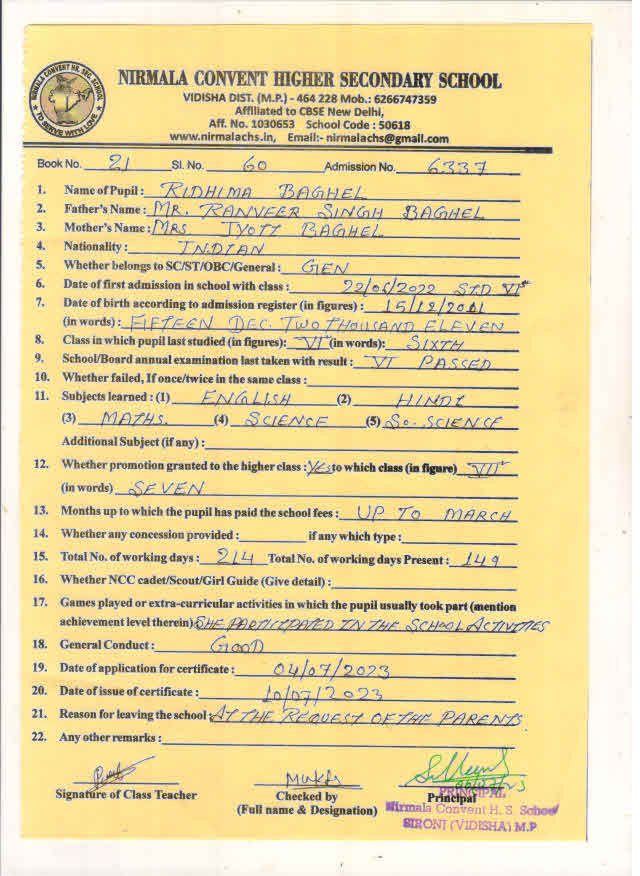 NIRMALA CONVENT HR. SEC. SCHOOL
TO SERVE WITH LOVE
NIRMALA CONVENT HIGHER SECONDARY SCHOOL
VIDISHA DIST. (M.P.) - 464 228 Mob.: 6266747359
Affiliated to CBSE New Delhi,
Aff. No. 1030653 School Code : 50618
www.nirmalachs.in, Email:- nirmalachs@gmail.com
Book No. 21 Sl. No. 60 Admission No. 6337
1. Name of Pupil : RIDHIMA BAGHEL
2. Father's Name : MR. RANVEER SINGH BAGHEL
3. Mother's Name : MRS JYOTI BAGHEL
4. Nationality : INDIAN
5. Whether belongs to SC/ST/OBC/General : GEN
6. Date of first admission in school with class : 22/06/2022 STD VI
7. Date of birth according to admission register (in figures) : 15/12/2011
(in words) : FIFTEEN DEC. TWO THOUSAND ELEVEN
8. Class in which pupil last studied (in figures): VI (in words): SIXTH
9. School/Board annual examination last taken with result : VI PASSED
10. Whether failed, If once/twice in the same class :
11. Subjects learned : (1) ENGLISH (2) HINDI
(3) MATHS. (4) SCIENCE (5) So. SCIENCE
Additional Subject (if any) :
12. Whether promotion granted to the higher class : Yes to which class (in figure) VII
(in words) SEVEN
13. Months up to which the pupil has paid the school fees : UP TO MARCH
14. Whether any concession provided : if any which type :
15. Total No. of working days : 214 Total No. of working days Present : 149
16. Whether NCC cadet/Scout/Girl Guide (Give detail) :
17. Games played or extra-curricular activities in which the pupil usually took part (mention
achievement level therein) SHE PARTICIPATED IN THE SCHOOL ACTIVITIES
18. General Conduct : GOOD
19. Date of application for certificate : 04/07/2023
20. Date of issue of certificate : 10/07/2023
21. Reason for leaving the school : AT THE REQUEST OF THE PARENTS
22. Any other remarks :
Signature of Class Teacher Checked by Principal
(Full name & Designation)
PRINCIPAL
Nirmala Convent H. S. School
SIRONJ (VIDISHA) M.P